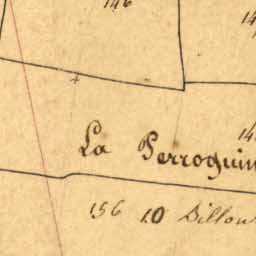 146
La Perroquin
156 10 Dillon